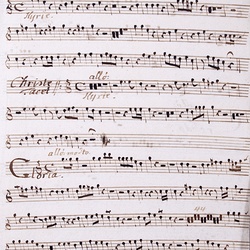 Kyrie.
Christe
allo
Kyrie.
allo molto
Gloria.